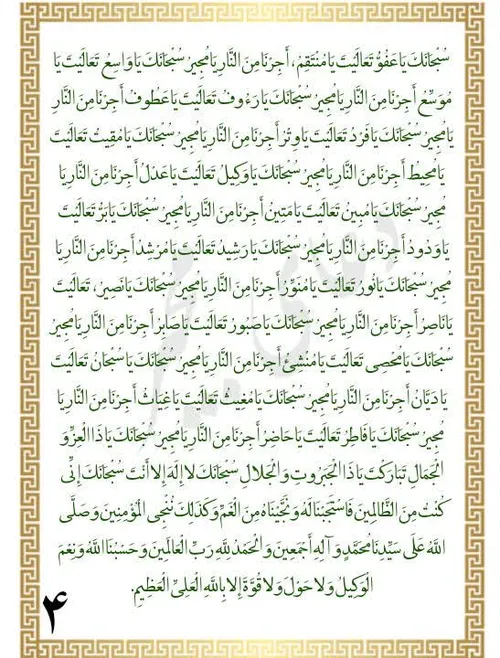 سُبْحَانَكَ يَا عَفُوُّ تَعَالَيْتَ يَا مُنْتَقِمُ، أَجِرْنَا مِنَ النَّارِ يَا مُجِيرُ سُبْحَانَكَ يَا وَاسِعُ تَعَالَيْتَ يَا
مُوَسِّعُ أَجِرْنَا مِنَ النَّارِ يَا مُجِيرُ سُبْحَانَكَ يَا رَءُوفُ تَعَالَيْتَ يَا عَطُوفُ أَجِرْنَا مِنَ النَّارِ
يَا مُجِيرُ سُبْحَانَكَ يَا فَرْدُ تَعَالَيْتَ يَا وِتْرُ أَجِرْنَا مِنَ النَّارِ يَا مُجِيرُ سُبْحَانَكَ يَا مُقِيتُ تَعَالَيْتَ
يَا مُحِيطُ أَجِرْنَا مِنَ النَّارِ يَا مُجِيرُ سُبْحَانَكَ يَا وَكِيلُ تَعَالَيْتَ يَا عَدْلُ أَجِرْنَا مِنَ النَّارِ يَا
مُجِيرُ سُبْحَانَكَ يَا مُبِينُ تَعَالَيْتَ يَا مَتِينُ أَجِرْنَا مِنَ النَّارِ يَا مُجِيرُ سُبْحَانَكَ يَا بَرُّ تَعَالَيْتَ
يَا وَدُودُ أَجِرْنَا مِنَ النَّارِ يَا مُجِيرُ سُبْحَانَكَ يَا رَشِيدُ تَعَالَيْتَ يَا مُرْشِدُ أَجِرْنَا مِنَ النَّارِ يَا
مُجِيرُ سُبْحَانَكَ يَا نُورُ تَعَالَيْتَ يَا مُنَوِّرُ أَجِرْنَا مِنَ النَّارِ يَا مُجِيرُ سُبْحَانَكَ يَا نَصِيرُ، تَعَالَيْتَ
يَا نَاصِرُ أَجِرْنَا مِنَ النَّارِ يَا مُجِيرُ سُبْحَانَكَ يَا صَبُورُ تَعَالَيْتَ يَا صَابِرُ أَجِرْنَا مِنَ النَّارِ يَا مُجِيرُ
سُبْحَانَكَ يَا مُحْصِي تَعَالَيْتَ يَا مُنْشِئُ أَجِرْنَا مِنَ النَّارِ يَا مُجِيرُ سُبْحَانَكَ يَا سُبْحَانُ تَعَالَيْتَ
يَا دَيَّانُ أَجِرْنَا مِنَ النَّارِ يَا مُجِيرُ سُبْحَانَكَ يَا مُغِيثُ تَعَالَيْتَ يَا غِيَاثُ أَجِرْنَا مِنَ النَّارِ يَا
مُجِيرُ سُبْحَانَكَ يَا فَاطِرُ تَعَالَيْتَ يَا حَاضِرُ أَجِرْنَا مِنَ النَّارِ يَا مُجِيرُ سُبْحَانَكَ يَا ذَا الْعِزِّ وَ
الْجَمَالِ تَبَارَكْتَ يَا ذَا الْجَبَرُوتِ وَ الْجَلالِ سُبْحَانَكَ لا إِلَهَ إِلا أَنْتَ سُبْحَانَكَ إِنِّي
كُنْتُ مِنَ الظَّالِمِينَ فَاسْتَجَبْنَا لَهُ وَ نَجَّيْنَاهُ مِنَ الْغَمِّ وَ كَذَلِكَ نُنْجِي الْمُؤْمِنِينَ وَ صَلَّى
اللَّهُ عَلَى سَيِّدِنَا مُحَمَّدٍ وَ آلِهِ أَجْمَعِينَ وَ الْحَمْدُ لِلَّهِ رَبِّ الْعَالَمِينَ وَ حَسْبُنَا اللَّهُ وَ نِعْمَ
الْوَكِيلُ وَ لا حَوْلَ وَ لا قُوَّةَ إِلا بِاللَّهِ الْعَلِيِّ الْعَظِيمِ.
۴